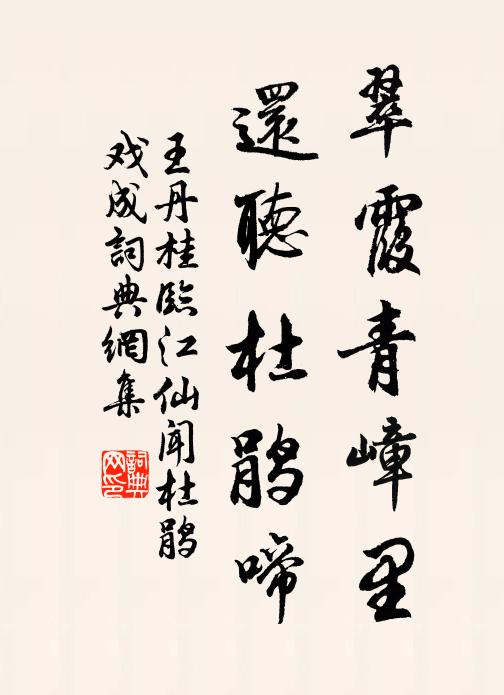 翠霞青嶂里
還聽杜鵑啼
王丹桂臨江仙聞杜鵑
戏成詞典網集
詞典
网印